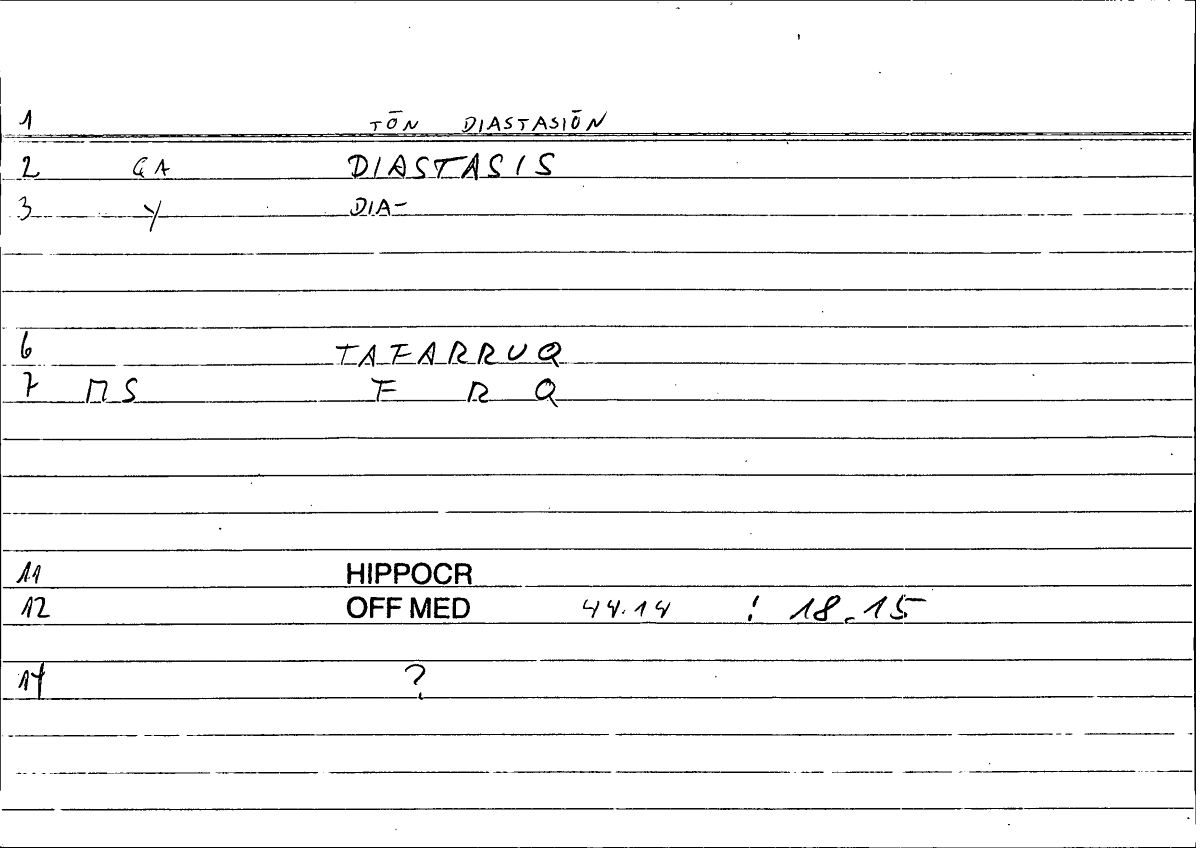 1 TŌN DIASTASIŌN
2 GA DIASTASIS
3 Y DIA-
6 TAFARRUQ
7 MS F R Q
11 HIPPOCR
12 OFF MED 44.14 : 18.15
14 ?